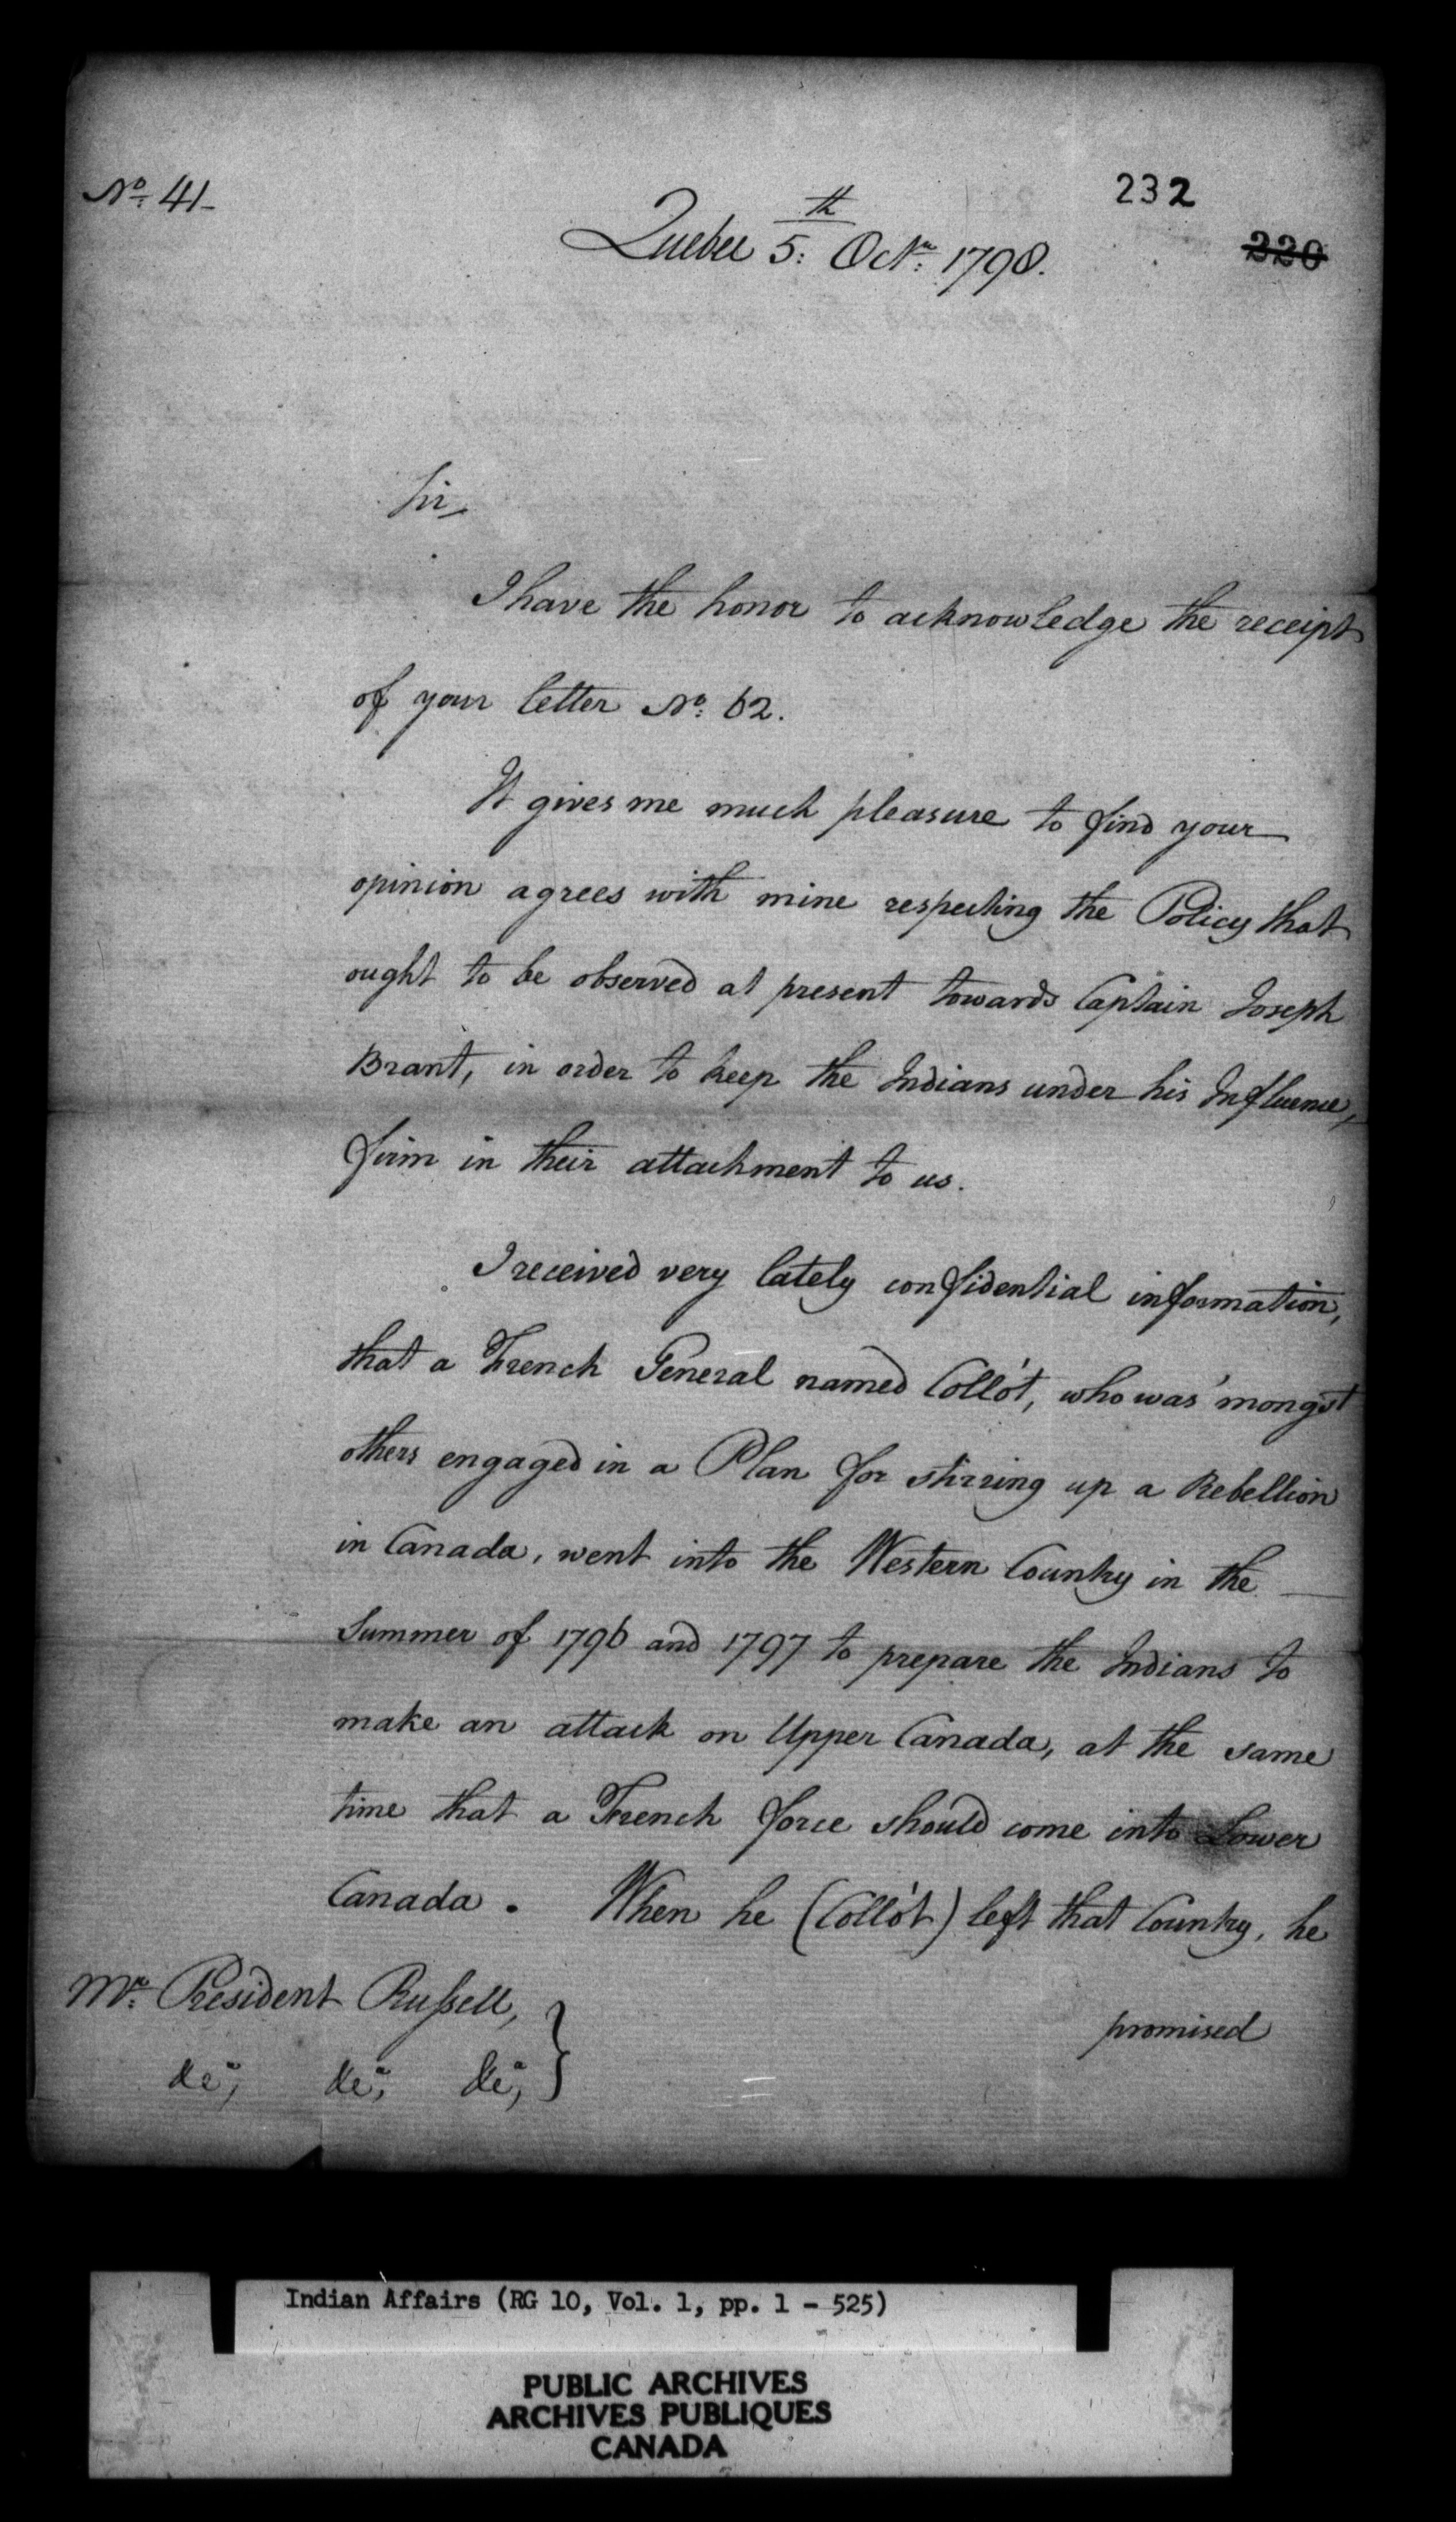 No. 41-
232
Quebec 5th: Octr: 1798.
220
Sir,
I have the honor to acknowledge the receipt
of your letter No: 62.
It gives me much pleasure to find your
opinion agrees with mine respecting the Policy that
ought to be observed at present towards Captain Joseph
Brant, in order to keep the Indians under his Influence,
firm in their attachment to us.
I received very lately confidential information,
that a French General named Collót, who was 'mongst
others engaged in a Plan for stirring up a Rebellion
in Canada, went into the Western Country in the
Summer of 1796 and 1797 to prepare the Indians to
make an attack on Upper Canada, at the same
time that a French force should come into Lower
Canada. When he (Collót) left that Country, he
promised
Mr: President Russell,
&ca, &ca, &ca, }
Indian Affairs (RG 10, Vol. 1, pp. 1 - 525)
PUBLIC ARCHIVES
ARCHIVES PUBLIQUES
CANADA